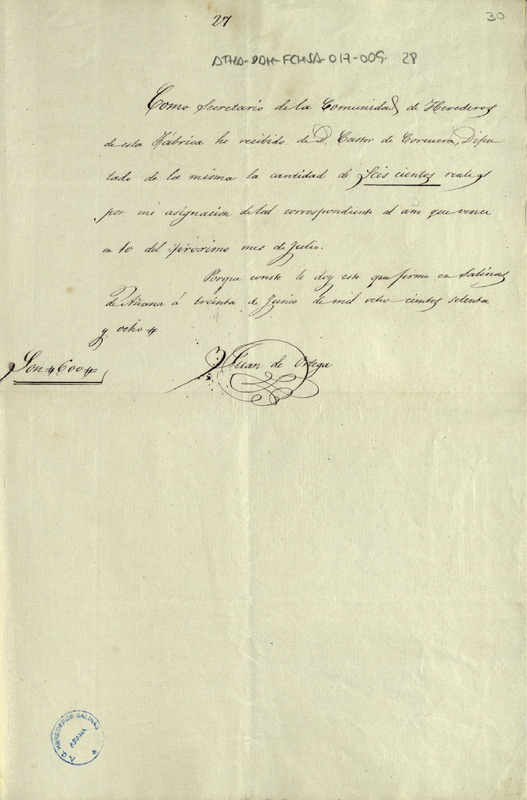 27
30
ATHA-DAH-FCHSA-017-009-28
Como Secretario de la Comunidad de Herederos
de esta Fábrica he recibido de D. Castor de Corcuera, Dipu
tado de la misma la cantidad de Seis cientos reales
por mi asignacion de tal correspondiente al año que vence
en 10 del procsimo mes de Julio.
Porque conste le doy este que firmo en Salinas
de Añana á treinta de Junio de mil ocho cientos setenta
y ocho
Son 600
Juan de Ortega
HEREDEROS SALINAS
AÑANA